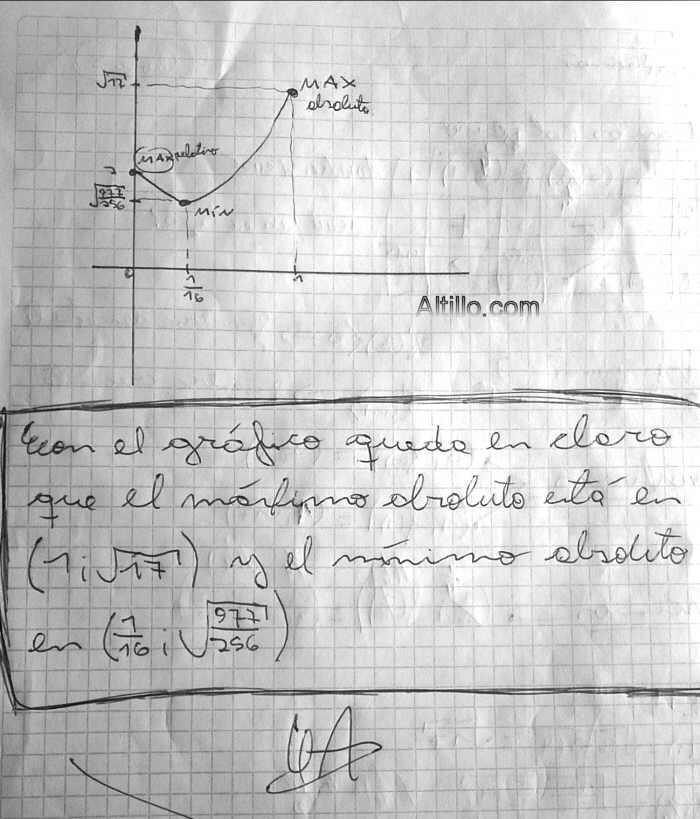 √17
MAX
absoluto
MAX relativo
2
√977/256
MÍN
0
1/16
1
Altillo.com
Con el gráfico queda en claro
que el máximo absoluto está en
(1; √17) y el mínimo absoluto
en (1/16; √977/256)